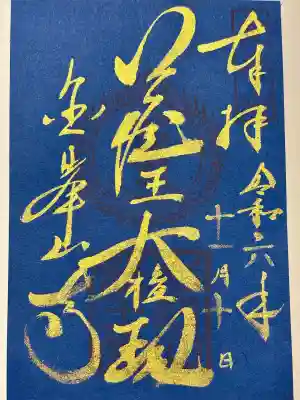 奉拝 令和六年
十一月十日
蔵王大権現
金峯山寺